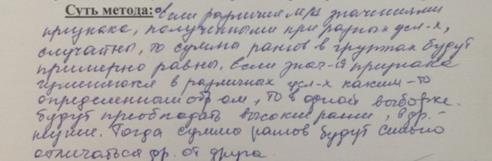 Суть метода: Если различия м/у значениями
признака, полученными при разных усл-х,
случайны, то суммы рангов в группах будут
примерно равны. Если знач-ия признака
изменяются в различных усл-х каким-то
определенным обр-ом, то в одной выборке
будут преобладать высокие ранги, в др. -
низкие. Тогда суммы рангов будут сильно
отличаться др. от друга.